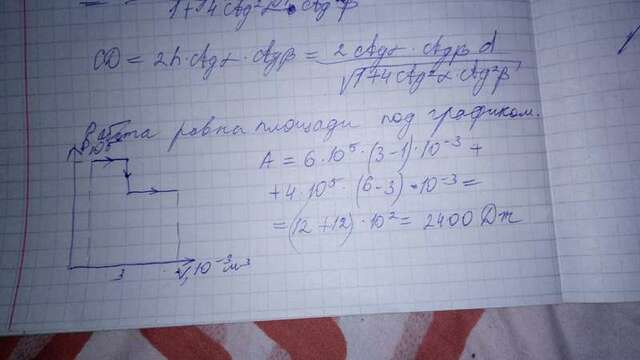 1+4 Ag²α · Ag²β
CD = 2h · Agα · Agβ = 2 Agα · Agβ d
√1+4 Ag²α · Ag²β
Работа равна площади под графиком.
A = 6·10⁵ · (3-1) · 10⁻³ +
+ 4·10⁵ · (6-3) · 10⁻³ =
= (12 + 12) · 10² = 2400 Дж
3
V, 10⁻³ м³